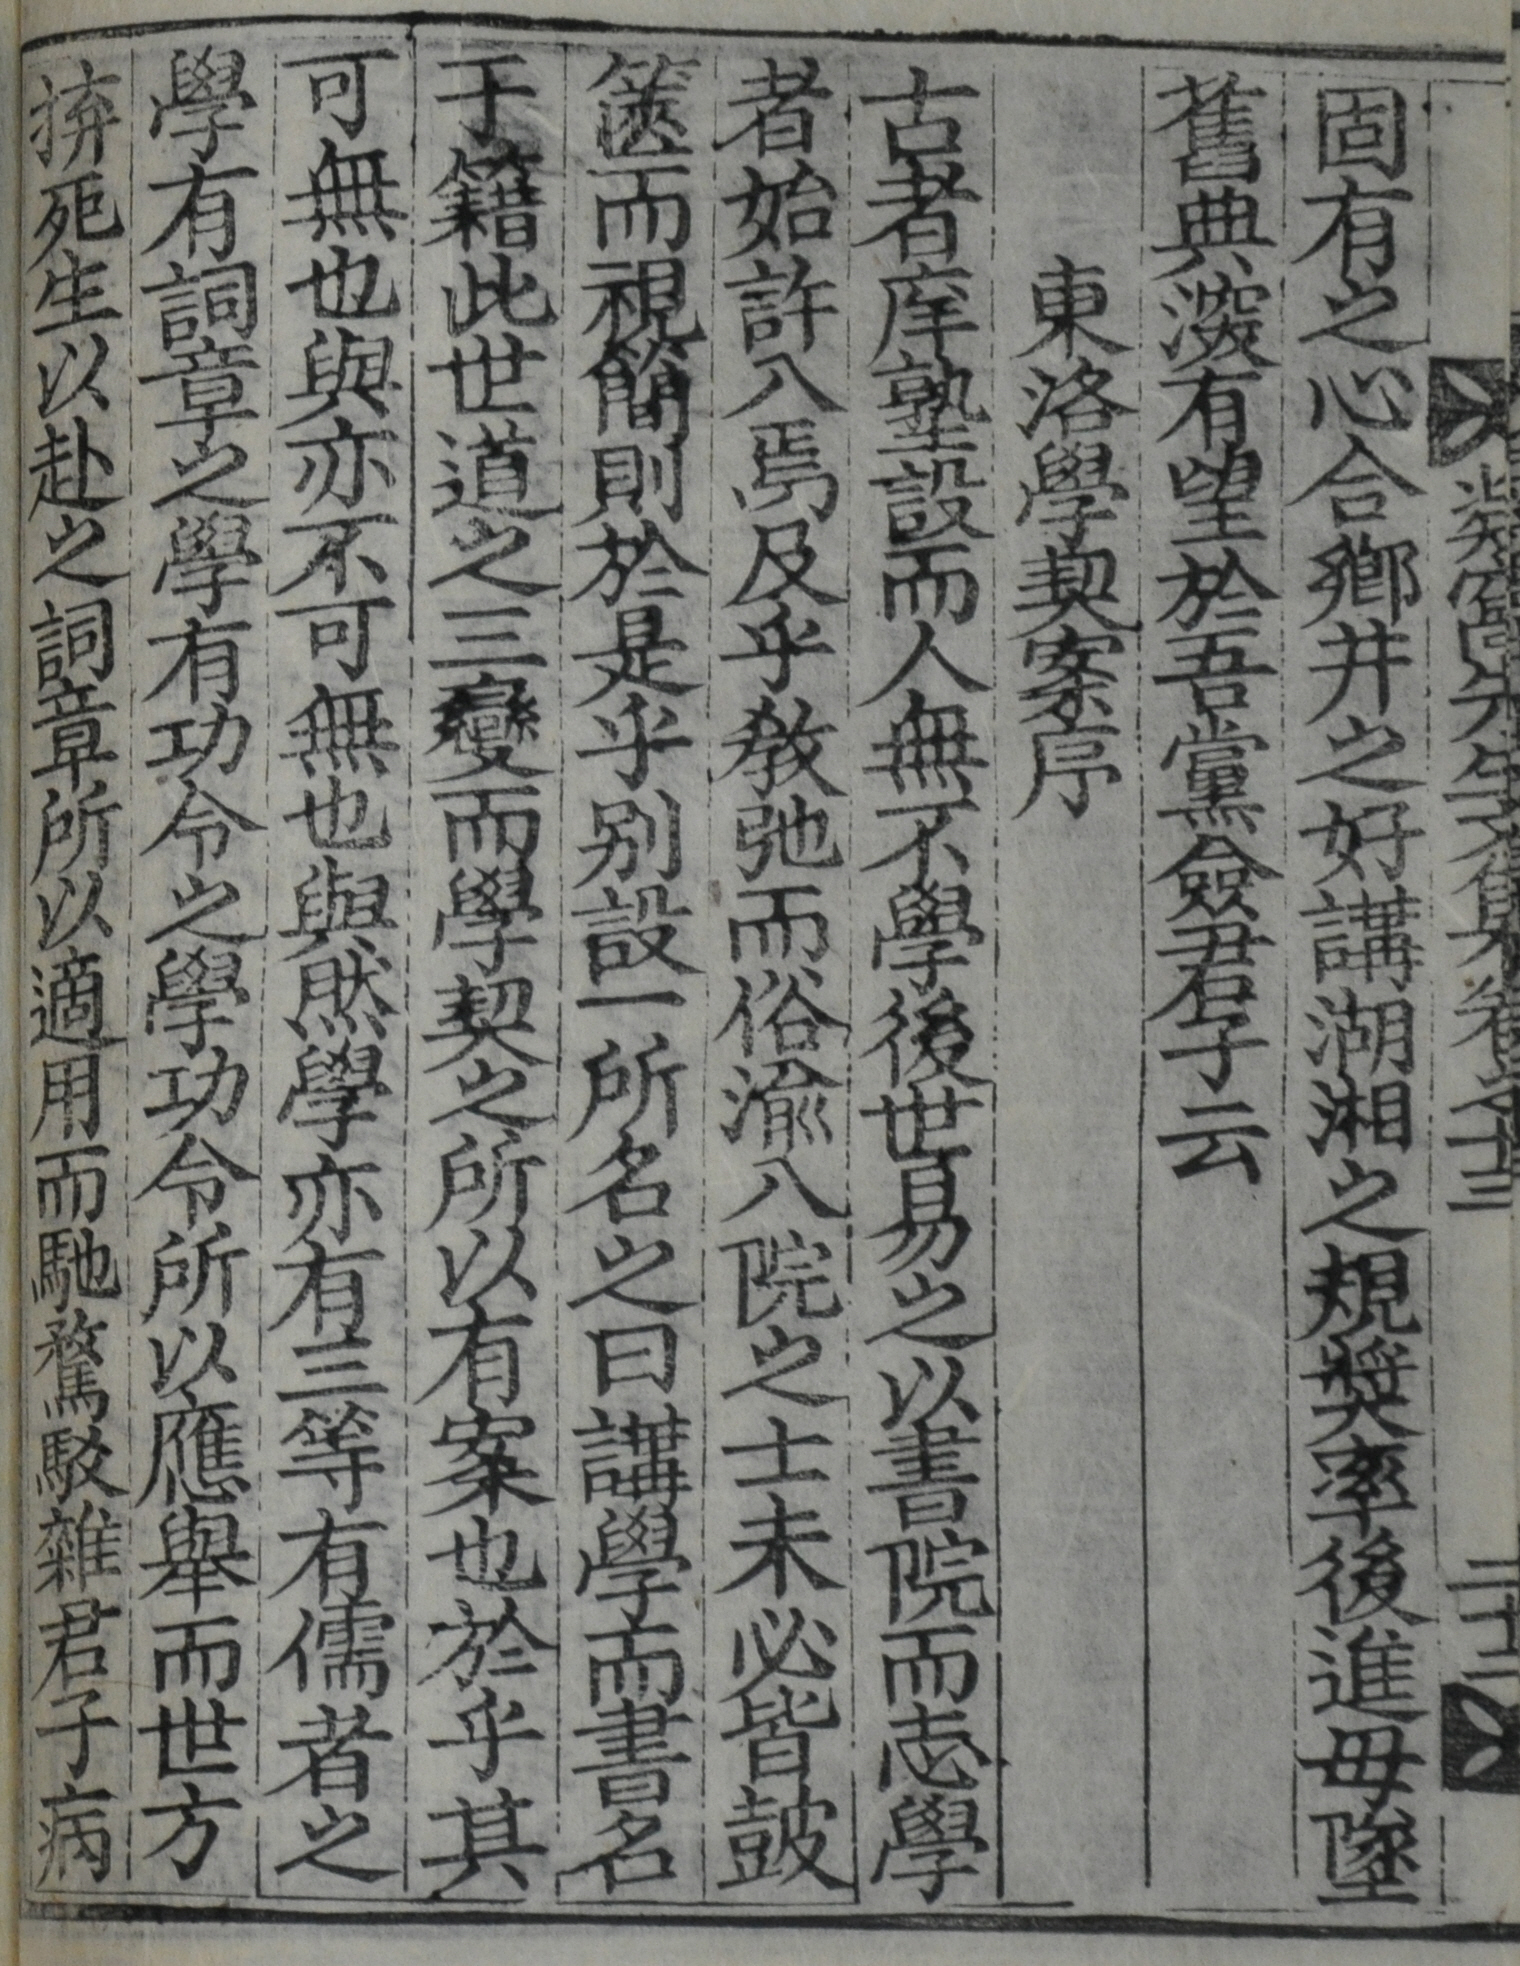 固有之心合鄕井之好講湖湘之規奬率後進毋墜
舊典深有望於吾黨僉君子云
東洛學契案序
古者庠塾設而人無不學後世易之以書院而志學
者始許入焉及乎敎弛而俗渝入院之士未必皆鼓
篋而視簡則於是乎別設一所名之曰講學而書名
于籍此世道之三變而學契之所以有案也於乎其
可無也與亦不可無也與然學亦有三等有儒者之
學有詞章之學有功令之學功令所以應擧而世方
拚死生以赴之詞章所以適用而馳騖駁雜君子病
先生文集卷之十三
二十二